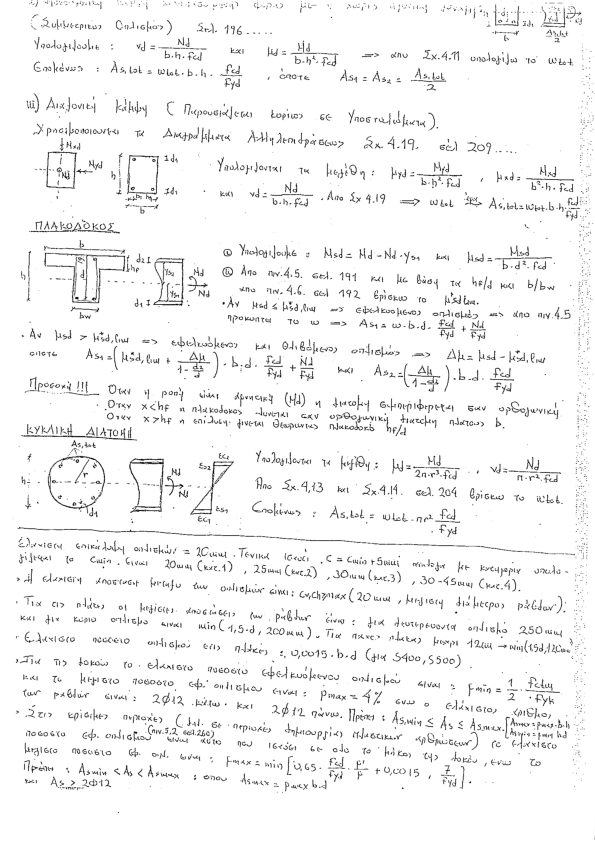 (Συμμετρικός Οπλισμός) Σελ. 196.....
Υπολογίζουμε : νd = Nd / b·h·fcd και μd = Md / b·h²·fcd => απο Σχ. 4.11 υπολογίζω το ωtot
Επομένως : As,tot = ωtot·b·h· fcd/fyd , οπότε As1 = As2 = As,tot/2
iii) Διαξονική Κάμψη ( Παρουσιάζεται κυρίως σε Υποστυλώματα).
Χρησιμοποιούνται τα Διαγράμματα Αλληλεπιδράσεως Σχ. 4.19. σελ 209.....
Υπολογίζονται τα μεγέθη : μyd = Myd / b·h²·fcd , μxd = Mxd / b²·h·fcd
και νd = Nd / b·h·fcd . Απο Σχ 4.19 => ωtot => As,tot = ωtot·b·h·fcd/fyd
ΠΛΑΚΟΔΟΚΟΣ
Υπολογίζουμε : Msd = Md - Nd·ys1 και μsd = Msd / b·d²·fcd
Απο πιν. 4.5. σελ. 191 και με βάση τα hf/d και b/bw
απο πιν. 4.6. σελ 192 βρίσκω το μ*sd,lim.
· Αν μsd ≤ μ*sd,lim => εφελκυόμενο οπλισμό => απο πιν. 4.5
προκύπτει το ω => As1 = ω·b·d· fcd/fyd + Nd/fyd
· Αν μsd > μ*sd,lim => εφελκυόμενο και θλιβόμενο οπλισμό => Δμ = μsd - μ*sd,lim
οπότε As1 = (μ*sd,lim + Δμ / 1-d2/d)·b·d· fcd/fyd + Nd/fyd και As2 = (Δμ / 1-d2/d)·b·d· fcd/fyd
Προσοχή !!! Όταν η ροπή είναι αρνητική (Md) η διατομή συμπεριφέρεται σαν ορθογωνική
Όταν x<hf η πλακοδοκός λύνεται σαν ορθογωνική διατομή πλάτους b.
Όταν x>hf η επίλυση γίνεται θεωρώντας πλακοδοκό hf/d
ΚΥΚΛΙΚΗ ΔΙΑΤΟΜΗ
As,tot
Υπολογίζονται τα μεγέθη : μd = Md / 2π·r³·fcd , νd = Nd / π·r²·fcd
Απο Σχ. 4.13 και Σχ. 4.14. σελ. 204 βρίσκω το ωtot.
Επομένως : As,tot = ωtot · πr² fcd/fyd
Ελάχιστη επικάλυψη οπλισμών = 20mm. Γενικά ισχύει c = cmin + 5mm ανάλογα με κατηγορία υπολο-
γίζεται το cmin. είναι 20mm (κατ.1) , 25mm (κατ.2) , 30mm (κατ.3) , 30-45mm (κατ.4).
· Η ελάχιστη απόσταση μεταξύ των οπλισμών είναι : max(20mm , μέγιστη διάμετρος ράβδων).
· Για τις πλάκες οι μέγιστες αποστάσεις των ράβδων είναι : για δευτερεύοντα οπλισμό 250mm
και για κύριο οπλισμό είναι min(1,5·d , 200mm).
· Ελάχιστο ποσοστό οπλισμού στις πλάκες : 0,0015·b·d (για S400, S500).
· Για τις δοκούς το ελάχιστο ποσοστό εφελκυόμενου οπλισμού είναι : ρmin = 1/2 · fctm/fyk
και το μέγιστο ποσοστό εφ. οπλισμού είναι : ρmax = 4% ενώ ο ελάχιστος αριθμός
των ραβδών είναι : 2Φ12 κάτω και 2Φ12 πάνω. Πρέπει : As,min ≤ As ≤ As,max.
· Στις κρίσιμες περιοχές (δηλ. σε περιοχές δημιουργίας πλαστικών αρθρώσεων) το ελάχιστο
ποσοστό εφ. οπλισμού είναι αυτό που ισχύει σε όλο το μήκος της δοκού, ενώ το
μέγιστο ποσοστό εφ. οπλ. είναι : ρmax = min [0,65· fcd/fyd · ρ'/ρ + 0,0015 , 7/fyd].
Πρέπει : Asmin < As < Asmax : όπου Asmax = ρmax b·d
και As > 2Φ12